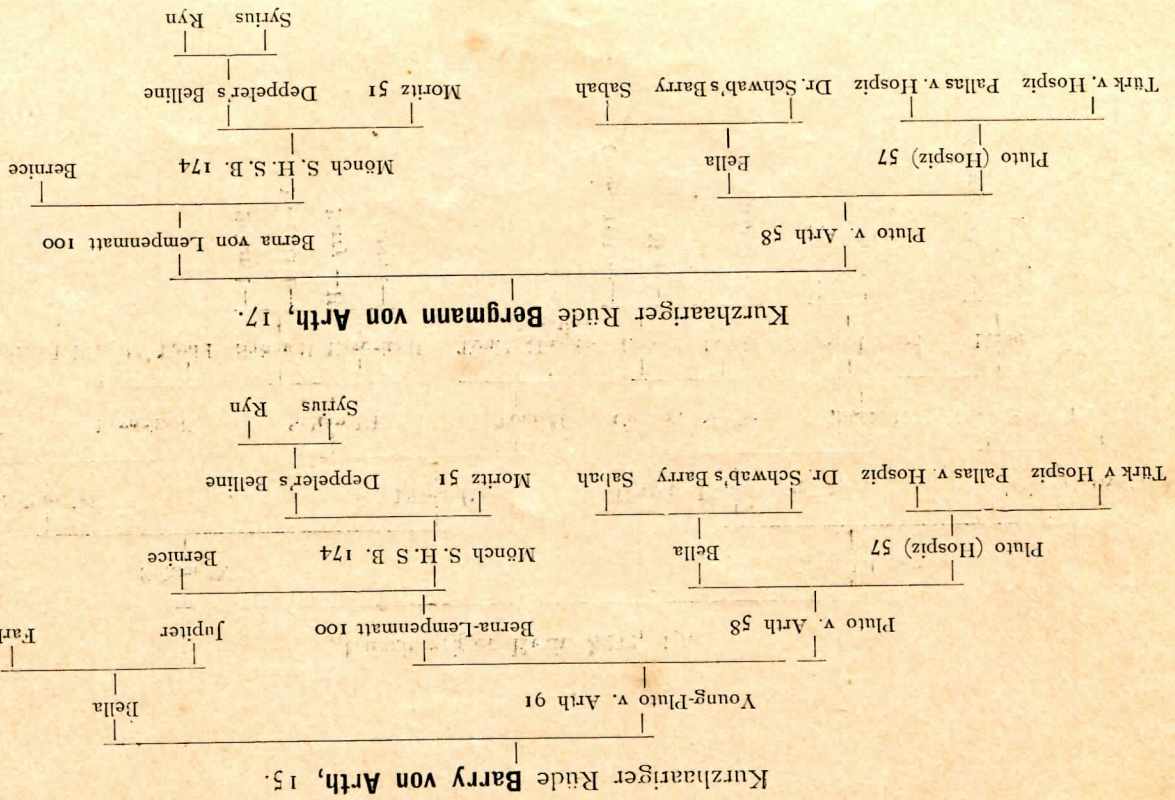 Kurzhaariger Rüde Barry von Arth, 15.
Young-Pluto v. Arth 91 Bella
Pluto v. Arth 58 Berna-Lempenmatt 100 Jupiter
Pluto (Hospiz) 57 Bella Mönch S. H. S B. 174 Bernice
Türk v Hospiz Pallas v. Hospiz Dr. Schwab's Barry Sabah Moritz 51 Deppeler's Belline
Syrius Ryn
Kurzhaariger Rüde Bergmann von Arth, 17.
Pluto v. Arth 58 Berna von Lempenmatt 100
Pluto (Hospiz) 57 Eella Mönch S. H. S. B. 174 Bernice
Türk v. Hospiz Pallas v. Hospiz Dr. Schwab's Barry Sabah Moritz 51 Deppeler's Belline
Syrius Ryn